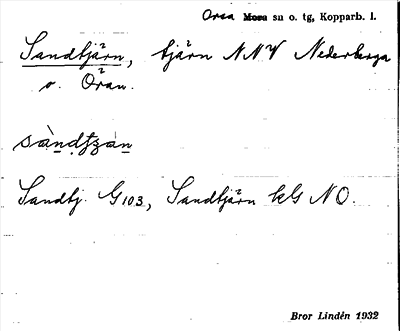 Orsa Mora sn o. tg, Kopparb. l.
Sandtjärn, tjärn NNV Nederberga
v. Öran.
sàndʈʂän
Sandtj. G103, Sandtjärn kG NO.
Bror Lindén 1932